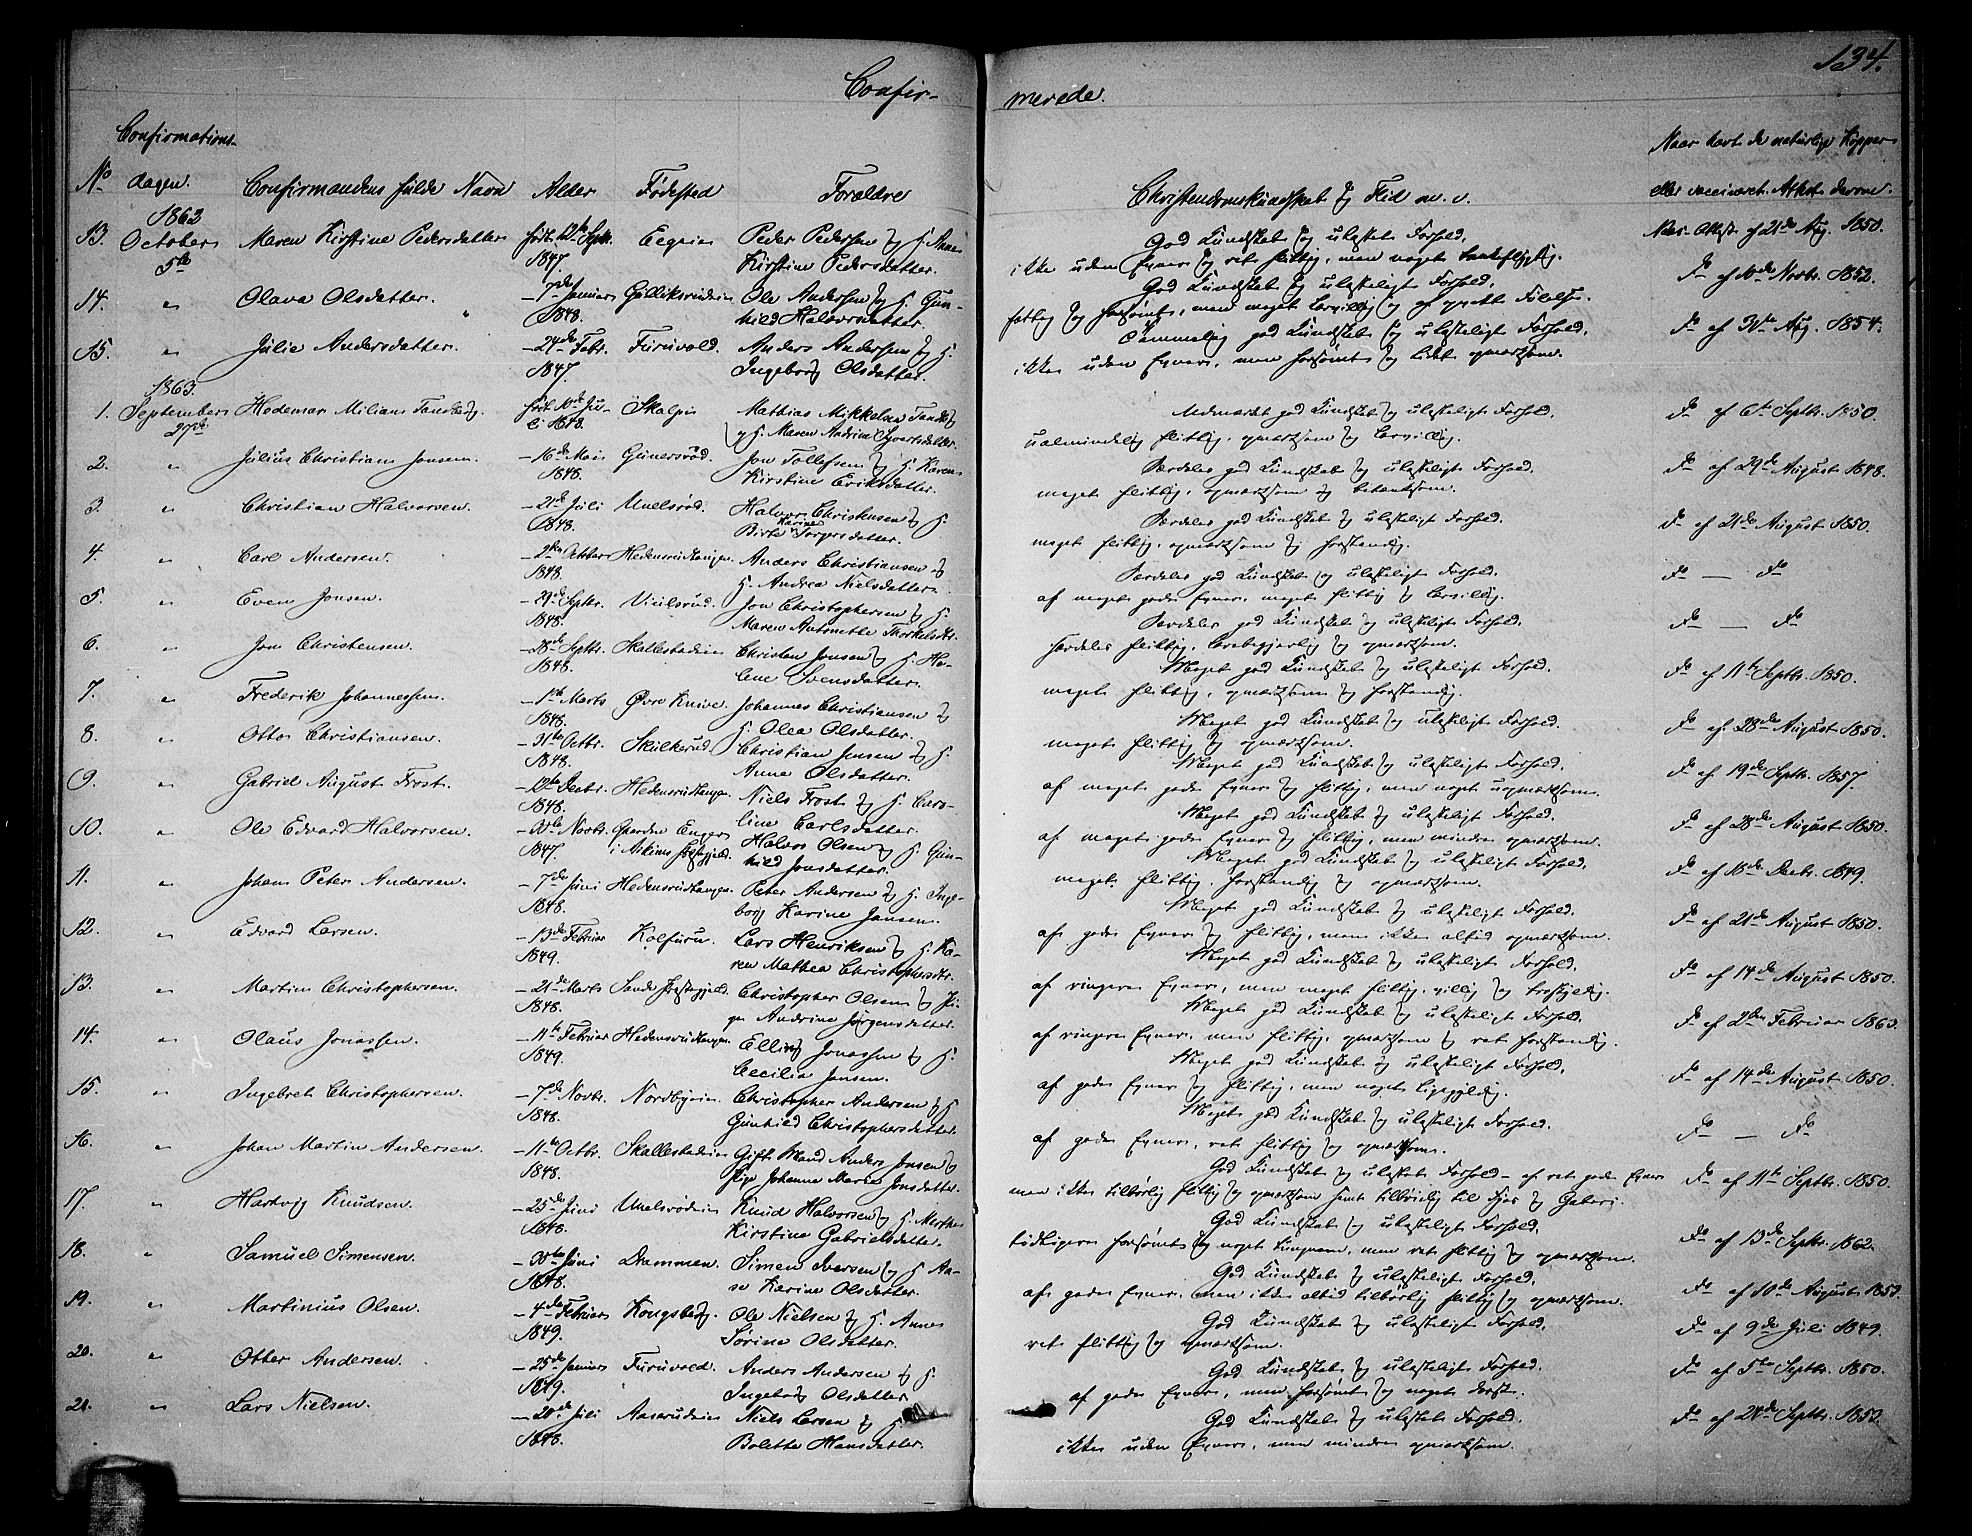 134.
Confir- merede.
Confirmations- Naar havt de naturlige Kopper
No dagen. Confirmandens fulde Navn Alder Fødested Forældre Christendomskundskab og Flid m. v. eller vaccineret. Attest derom.
1862
13. October Maren Kirstine Pedersdatter født 12te Septr. Peder Pedersen og H. Anne God Kundskab og ulastet Forhold, af 21de Aug. 1850.
5te 1847. Kirstine Pedersdatter. ikke uden Evner og ret flittig, men noget tankeflygtig.
14. " Olava Olsdatter. – 7de Januar Gulliksrudeie Ole Andersen og H. Gun- God Kundskab og ulasteligt Forhold, Do af 10de Novbr. 1852.
1848. hild Halvorsdatter. fattig og forsømt, men meget lærvillig og af
15. " Julie Andersdatter. – 24de Febr. Furuvold. Anders Andersen og H. Temmelig god Kundskab og ulasteligt Forhold, Do af Aug. 1854.
1847. Ingeborg Olsdatter. ikke uden Evner, men forsømt og lidet opmærksom.
1863.
1. September Hedemar Milian Tandberg. født 10de Ju- Skalpe Mathias Mikkelsen Tandbg Udmærket god Kundskab og ulasteligt Forhold, Do af 6te Septbr. 1850.
27de li 1848. og H. Maren Andrine Syvertsdatter. ualmindelig flittig, opmærksom og lærvillig.
2. " Julius Christian Jonsen. – 16de Mai Gunersrød. Jon Tollefsen og H. Karen Særdeles god Kundskab og ulasteligt Forhold. Do af 29de August 1848.
1848. Kirstine Eriksdatter. meget flittig, opmærksom og betænksom.
3. " Christian Halvorsen. – 21de Juli Unelsrød. Halvor Christensen og H. Særdeles god Kundskab og ulasteligt Forhold. Do af 21de August 1850.
1848. Birte Karine Torgersdatter. meget flittig, opmærksom og forstandig.
4. " Carl Andersen. – 2den October Hedensrudtangen. Anders Christiansen og Særdeles god Kundskab og ulasteligt Forhold, Do — Do
1848. H. Andrea Nielsdatter. af meget gode Evner, meget flittig og lærvillig.
5. " Even Jonsen. – 29de Septbr. Jon Christophersen og H. Særdeles god Kundskab og ulasteligt Forhold, Do — Do
1848. Maren Antonette Thorkelsdtr. særdeles flittig, lærebegjærlig og opmærksom.
6. " Jon Christensen. – 28de Septbr. Skallestadeie Christen Jonsen og H. He- Meget god Kundskab og ulasteligt Forhold. Do af 11te Septbr. 1850.
1848. lene Svensdatter. meget flittig, opmærksom og forstandig.
7. " Frederik Johannessen. – 1ste Marts Øvre Knive. Johannes Christiansen og Meget god Kundskab og ulasteligt Forhold. Do af 28de August 1850.
1848. H. Olea Olsdatter. meget flittig og opmærksom.
8. " Otto Christiansen. – 31te Octbr. Skilkerud. Christian Jensen og H. Meget god Kundskab og ulasteligt Forhold, Do af 19de Septbr. 1857.
1848. Anne Olsdatter. af meget gode Evner og flittig, men noget uopmærksom.
9. " Gabriel August Frost. – 12te Decbr. Hedensrudtangen Niels Frost og H. Caro- Meget god Kundskab og ulasteligt Forhold, Do af 28de August 1850.
1848. line Carlsdatter. af meget gode Evner og flittig, men mindre opmærksom.
10. " Ole Edvard Halvorsen. – 30te Novbr. Gaarden Enger Halvor Olsen og H. Gun- Meget god Kundskab og ulasteligt Forhold, Do af 18de Decbr. 1849.
1847. i Askims Præstegjeld. hild Jonsdatter. meget flittig, forstandig og opmærksom.
11. " Johan Peter Andersen. – 7de Juni Hedensrudtangen. Peter Andersen og H. Inge- Meget god Kundskab og ulasteligt Forhold, Do af 21de August 1850.
1848. borg Karine Jansen. af gode Evner og flittig, men ikke altid opmærksom.
12. " Edvard Larsen. – 13de Februar Kolfuru. Lars Henriksen og H. Ka- Meget god Kundskab og ulasteligt Forhold, Do af 14de August 1850.
1849. ren Mathea Christophersdtr. af ringere Evner, men meget flittig, villig og
13. " Martin Christophersen. – 21de Marts Sande Præstegjeld. Christopher Olsen og Pi- Meget god Kundskab og ulasteligt Forhold. Do af 2den Februar 1863.
1848. ge Andrine Jørgensdatter. af ringere Evner, men flittig, opmærksom og ret forstandig.
14. " Olaus Jonassen. – 11te Februar Hedensrudtangen Elling Jonassen og H. Meget god Kundskab og ulasteligt Forhold, Do af 14de August 1850.
1849. Cecilia Jansen. af gode Evner og flittig, men noget ligegyldig.
15. " Ingebret Christophersen. – 7de Novbr. Nordbyeie. Christopher Andersen og H. Meget god Kundskab og ulasteligt Forhold, Do — Do
1848. Gunhild Christophersdatter. af gode Evner, ret flittig og opmærksom.
16. " Johan Martin Andersen. – 11te Octbr. Skallestadeie Gift Mand Anders Jonsen og God Kundskab og ulastet Forhold – af ret gode Evner Do af 11te Septbr. 1850.
1848. Pige Johanne Marie Jonsdatter. men ikke tilbørlig flittig og opmærksom samt tilbøielig til
17. " Hartvig Knudsen. – 25de Juni Unelsrødeie Knud Halvorsen og H. Marthe God Kundskab og ulasteligt Forhold, Do af 13de Septbr. 1862.
1848. Kirstine Gabrielsdatter. tidligere forsømt og noget tungnem, men ret flittig og opmærksom.
18. " Samuel Simensen. – 30te Juni Drammen. Simen Iversen og H. An- God Kundskab og ulasteligt Forhold, Do af 10de August 1853.
1848. ne Karine Olsdatter. af gode Evner, men ikke altid tilbørlig flittig og opmærksom.
19. " Martinius Olsen. – 4de Februar Kongsberg. Ole Nielsen og H. Anne God Kundskab og ulasteligt Forhold, Do af 9de Juli 1849.
1849. Sørine Olsdatter. ret flittig og opmærksom.
20. " Otter Andersen. – 25de Januar Furuvold. Anders Andersen og H. God Kundskab og ulasteligt Forhold, Do af 5te Septbr. 1850.
1849. Ingeborg Olsdatter. af gode Evner, men forsømt og noget
21. " Lars Nielsen. – 20de Juli Aaserudeie Niels Larsen og H. God Kundskab og ulastet Forhold, Do af 24de Septbr. 1852.
1848. Bolette Hansdatter. ikke uden Evner, men mindre opmærksom.